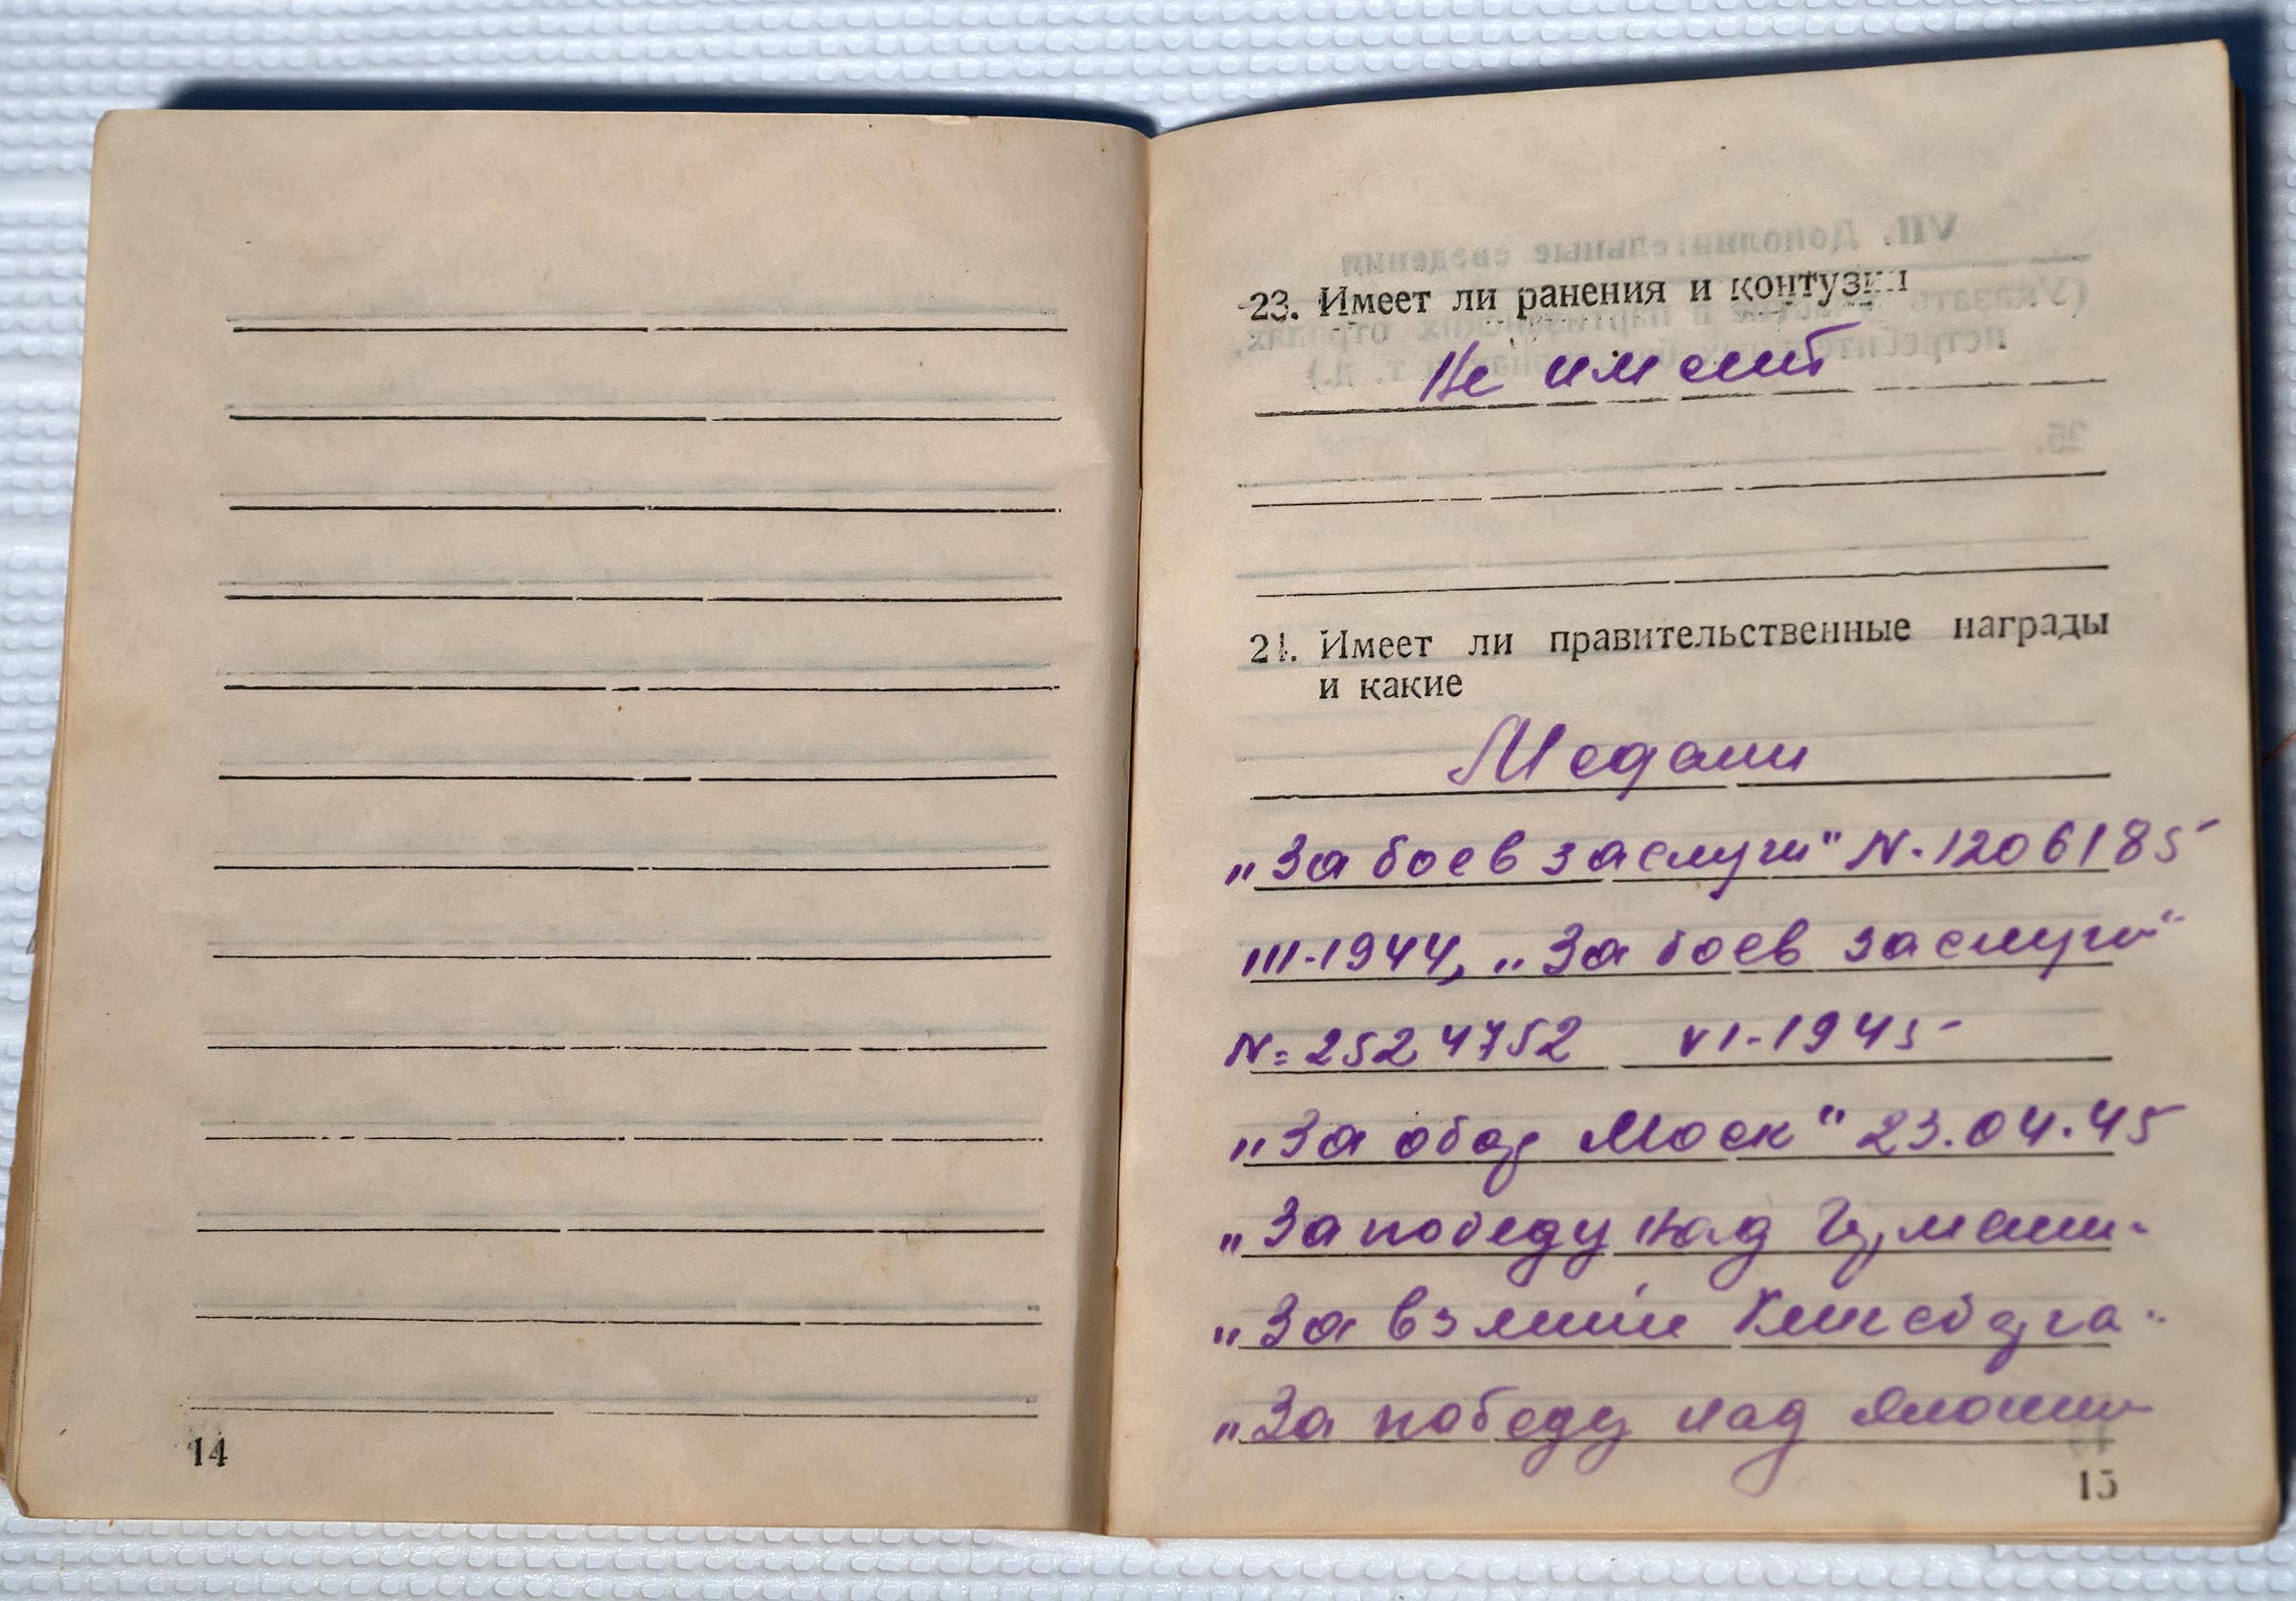 14
23. Имеет ли ранения и контузии
Не имеет
24. Имеет ли правительственные награды
и какие
Медали
„За боев заслуги" N-1206185
III-1944, „За боев заслуги"
N=2524752 VI-1945
„За обор Моск" 23.04.45
„За победу над Германи-
„За взятие Кенигсберга"
„За победу над Японии
15